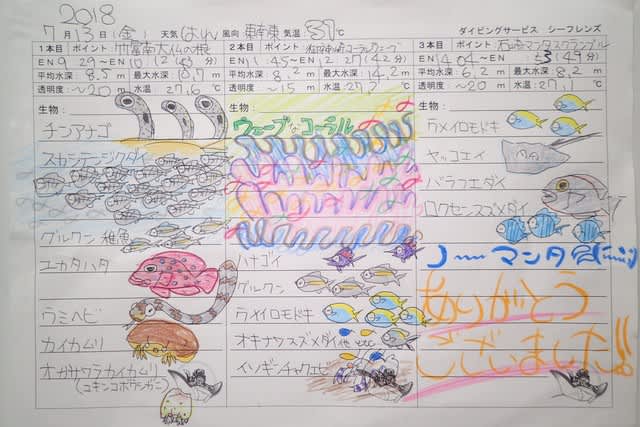 2018
7月13日(金) 天気 はれ 風向 南東 気温 31℃ ダイビングサービス シーフレンズ
1本目 ポイント 竹富南大仏の根
EN 9:29~EN 10:12(43分)
平均水深 8.5m 最大水深 10.7m
透明度 ~20m 水温 27.6℃
生物:
チンアナゴ
スカシテンジクダイ
グルクン 稚魚
ユカタハタ
ウミヘビ
カイカムリ
オガサワラカイカムリ
(コキンコボウシガニ)
2本目 ポイント
EN 11:45~EN 12:27(42分)
平均水深 8.2m 最大水深 14.2m
透明度 ~15m 水温 27.
生物:
ウェーブなコーラル
ハナゴイ
グルクン
ウメイロモドキ
オキナワスズメダイ他 etc
イソギンチャクエビ
3本目 ポイント 石崎マンタスクランブル
EN 14:04~EN (49分)
平均水深 6.2m 最大水深 8.2m
透明度 ~20m 水温 27.1℃
生物:
ウメイロモドキ
ヤッコエイ
バラフエダイ
ロクセンスズメダイ
ノーマンタ
ありがとう
ございました!!